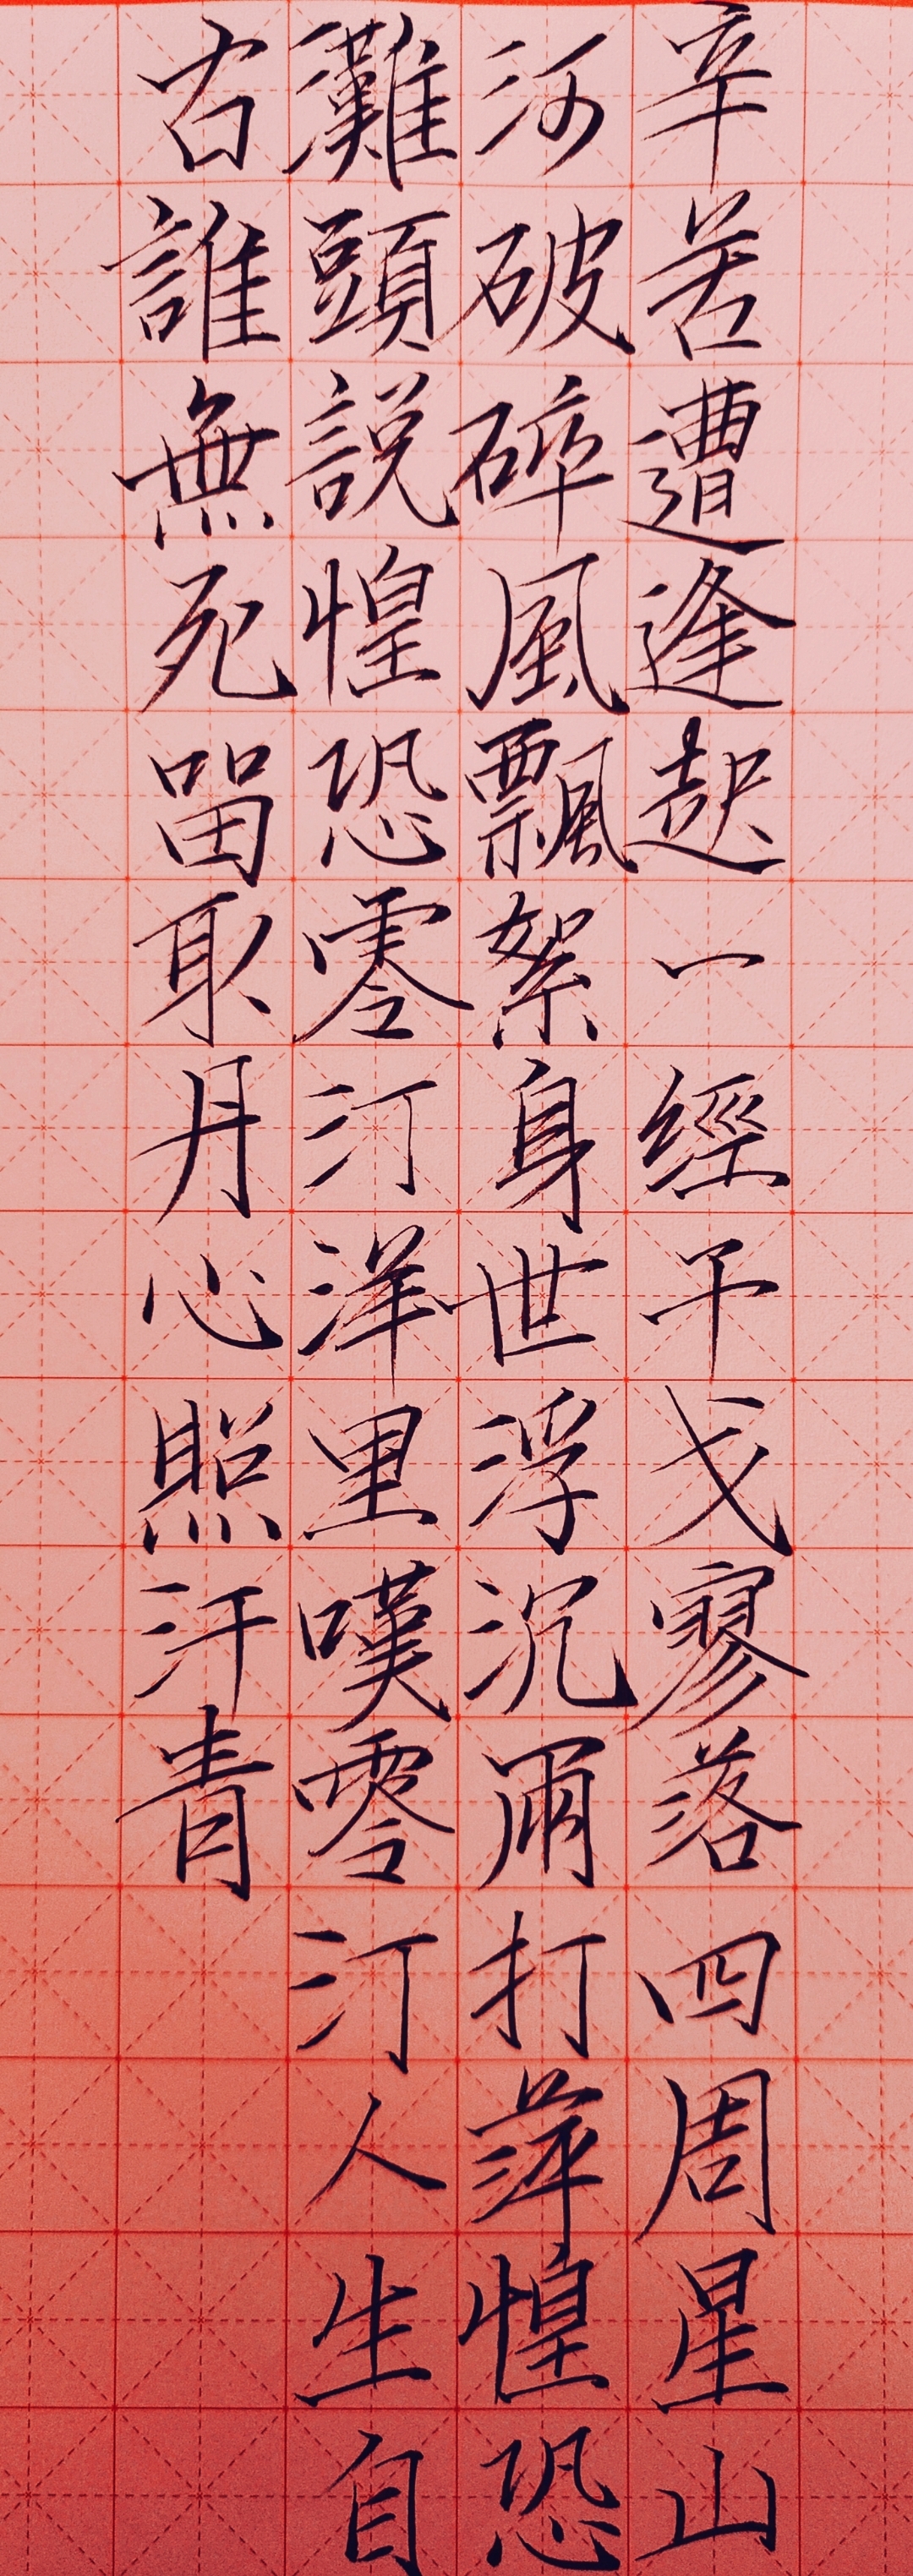 辛苦遭逢起一經干戈寥落四周星山
河破碎風飄絮身世浮沉雨打萍惶恐
灘頭説惶恐零汀洋里嘆零汀人生自
古誰無死留取丹心照汗青